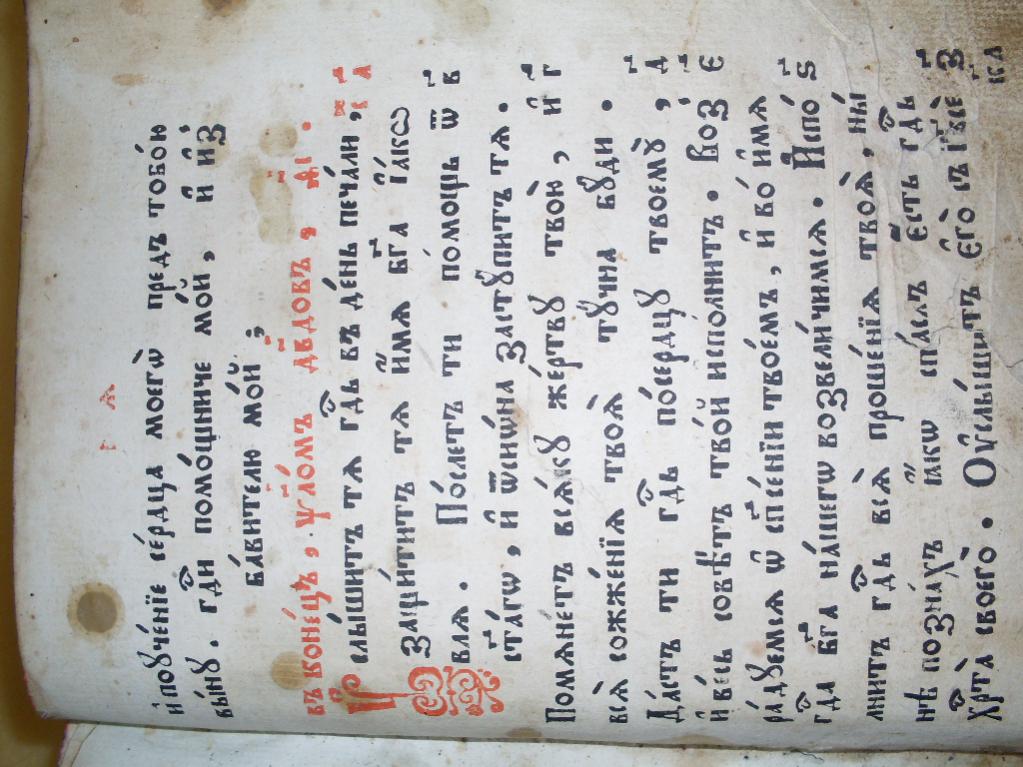 и҆ поꙋче́нїе се́рдца моегѡ̀ предъ тобо́ю
вы́нꙋ. гдⷭ҇и помо́щниче мо́й, и҆ и҆з
ба́вителю мо́й ;
въ коне́цъ, ѱⷧ҇о́мъ дв҃довъ,
слы́шитъ тѧ гдⷭ҇ь въ де́нь печа́ли, а҃
защи́титъ тѧ и҆́мѧ бг҃а і҆а́кѡ
влѧ. По́слетъ ти по́мощь ѿ в҃
ст҃а́гѡ, и҆ ѿ сиѡ́на застꙋ́питъ тѧ.
Помѧне́тъ всѧ́кꙋ же́ртвꙋ твою̀, и҆ г҃
всѧ̀ сожже́нїѧ твоѧ̀ тꙋчна бꙋди.
Да́стъ ти гдⷭ҇ь по се́рдцꙋ твоемꙋ̀, д҃
и҆ ве́сь совѣ́тъ тво́й испо́лнитъ. Воз є҃
ра́дꙋемсѧ ѿ сп҃се́нїи твое́мъ, и҆ во и҆́мѧ
гдⷭ҇а бг҃а на́шегѡ возвели́чимсѧ. И҆спо́ ѕ҃
лнитъ гдⷭ҇ь всѧ̀ проше́нїѧ твоѧ̀, ны́
нѣ позна́хъ ꙗ҆́кѡ сп҃слъ є҆́сть гдⷭ҇ь
Хрⷭ҇та̀ своего̀. Оу҆слы́шитъ є҆го̀ съ з҃
к҃а